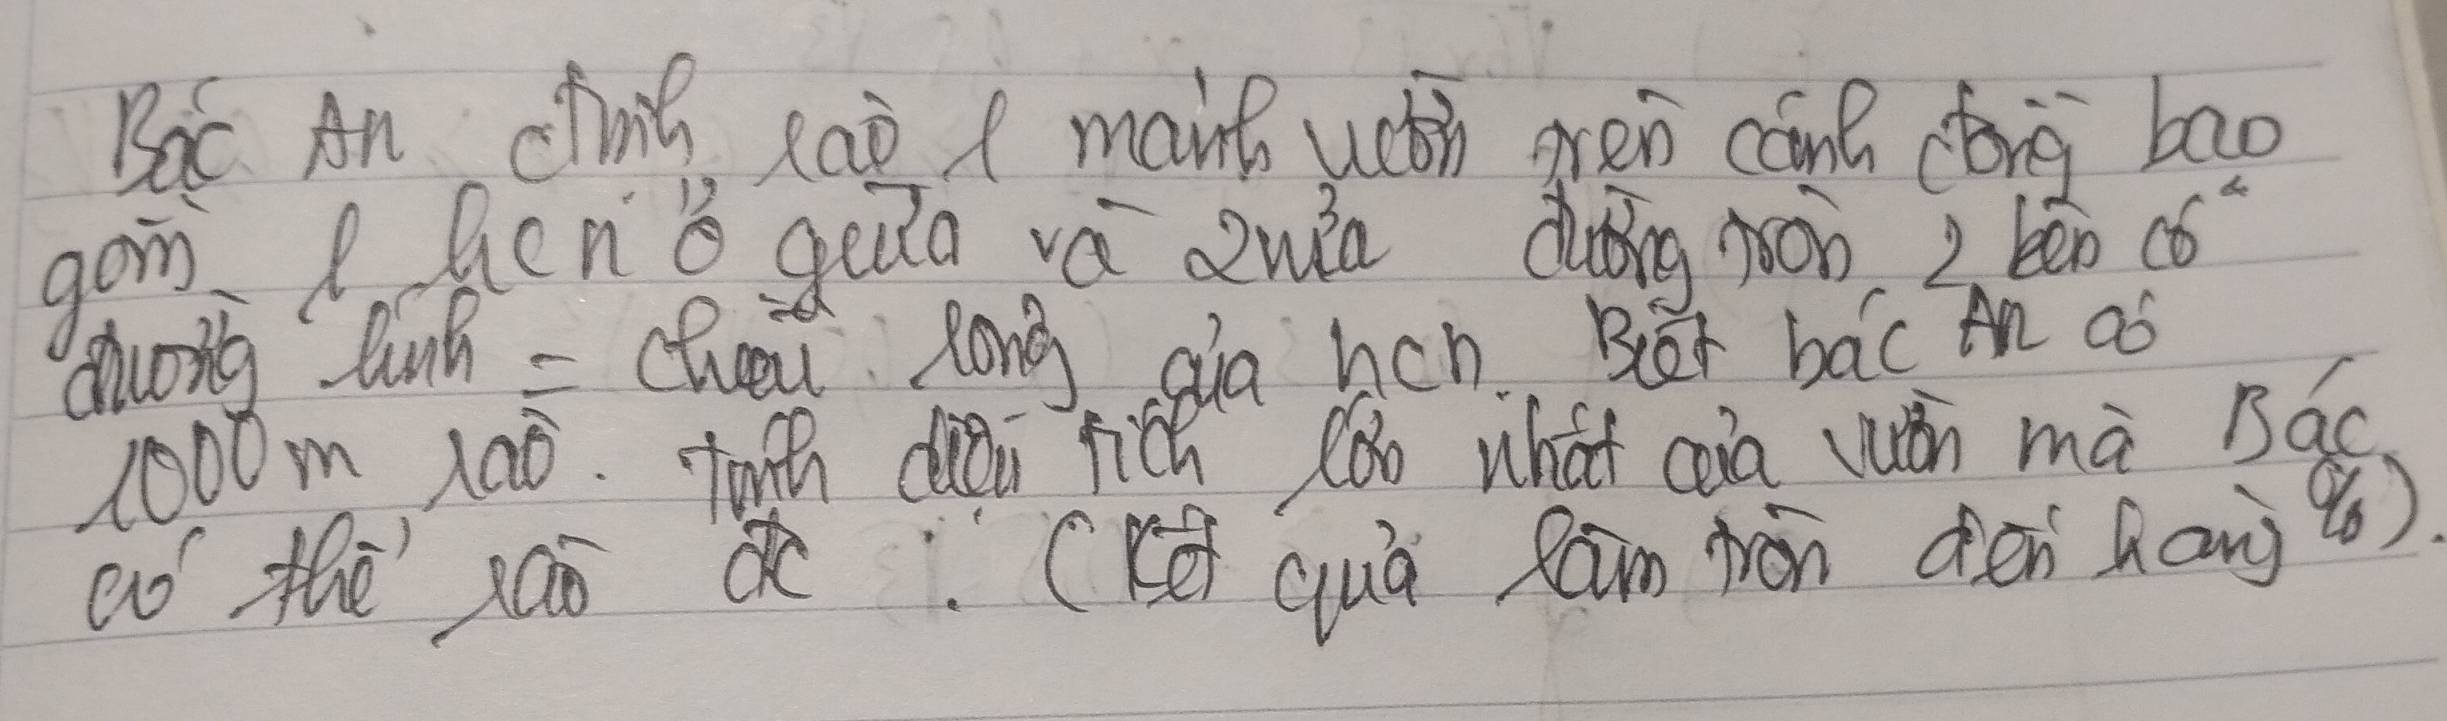 Bác An định rào 1 mảnh vườn trên cánh đồng bao
gồm 1 hcn ở giữa và 2 nửa đường tròn 2 bên có
đường kính = chiều rộng của hcn. Biết bác An có
1000m rào. Tính diện tích lớn nhất của vườn mà Bác
có thể rào đc. (Kết quả làm tròn đến hàng %).